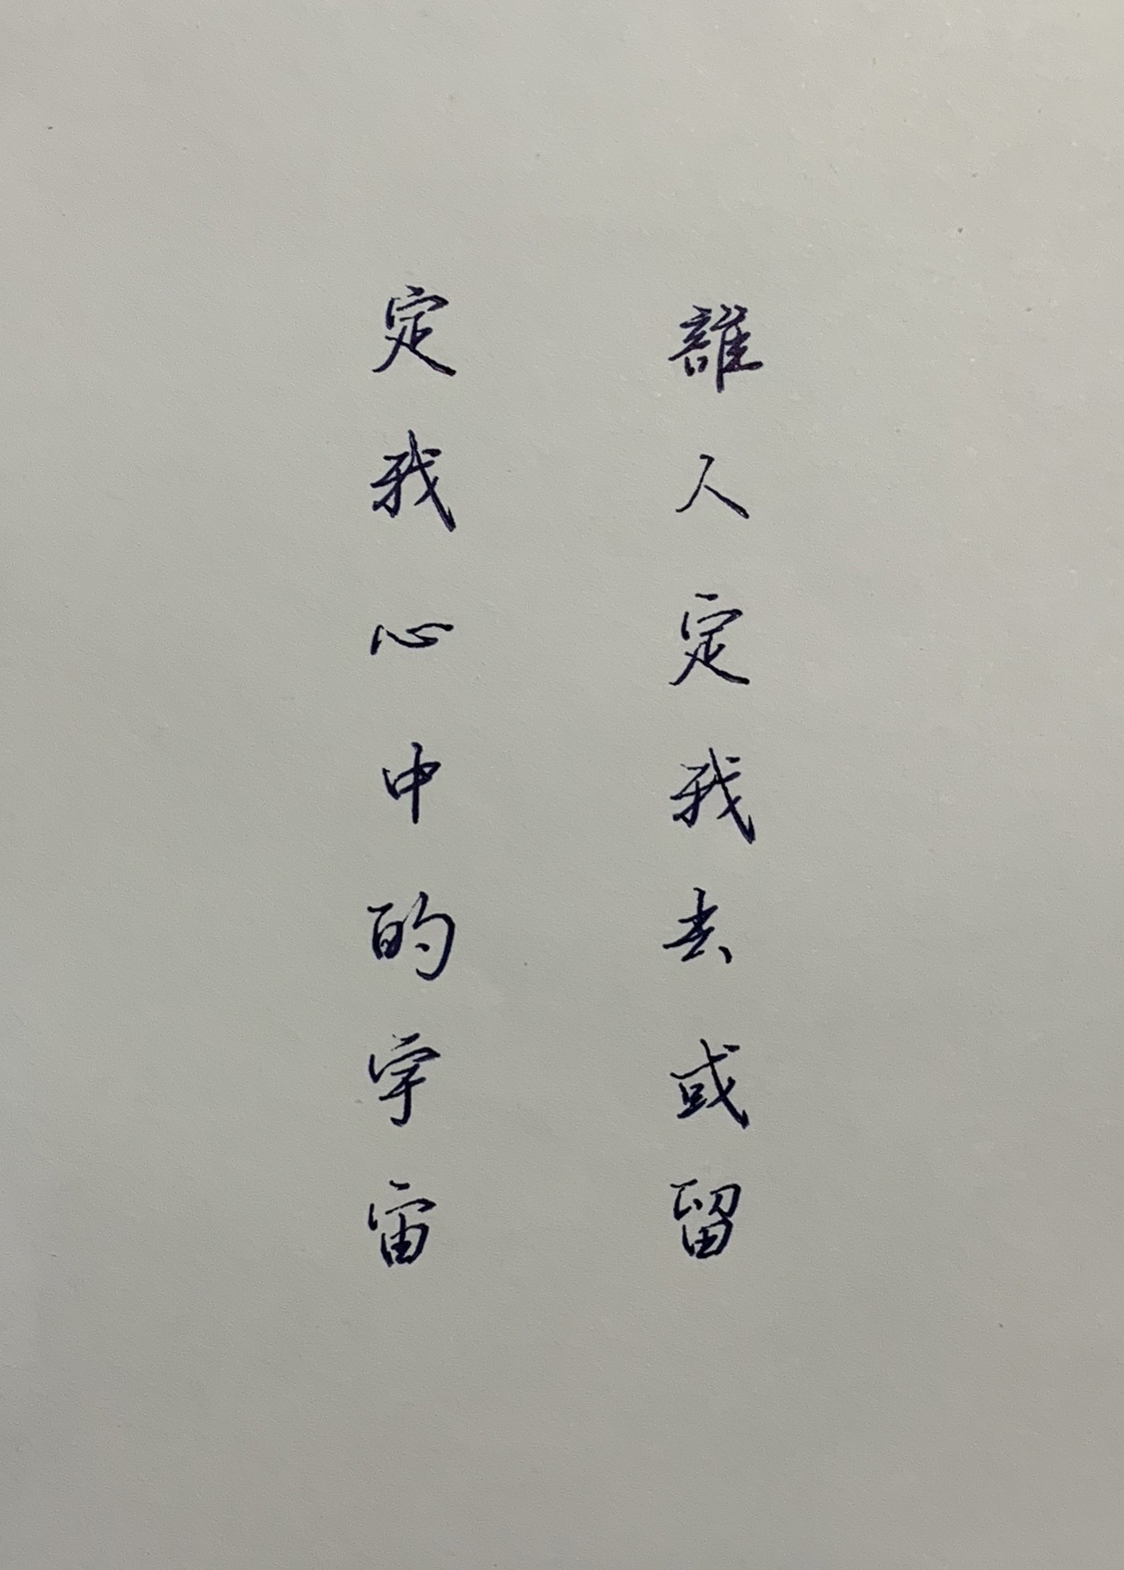 誰人定我去或留
定我心中的宇宙